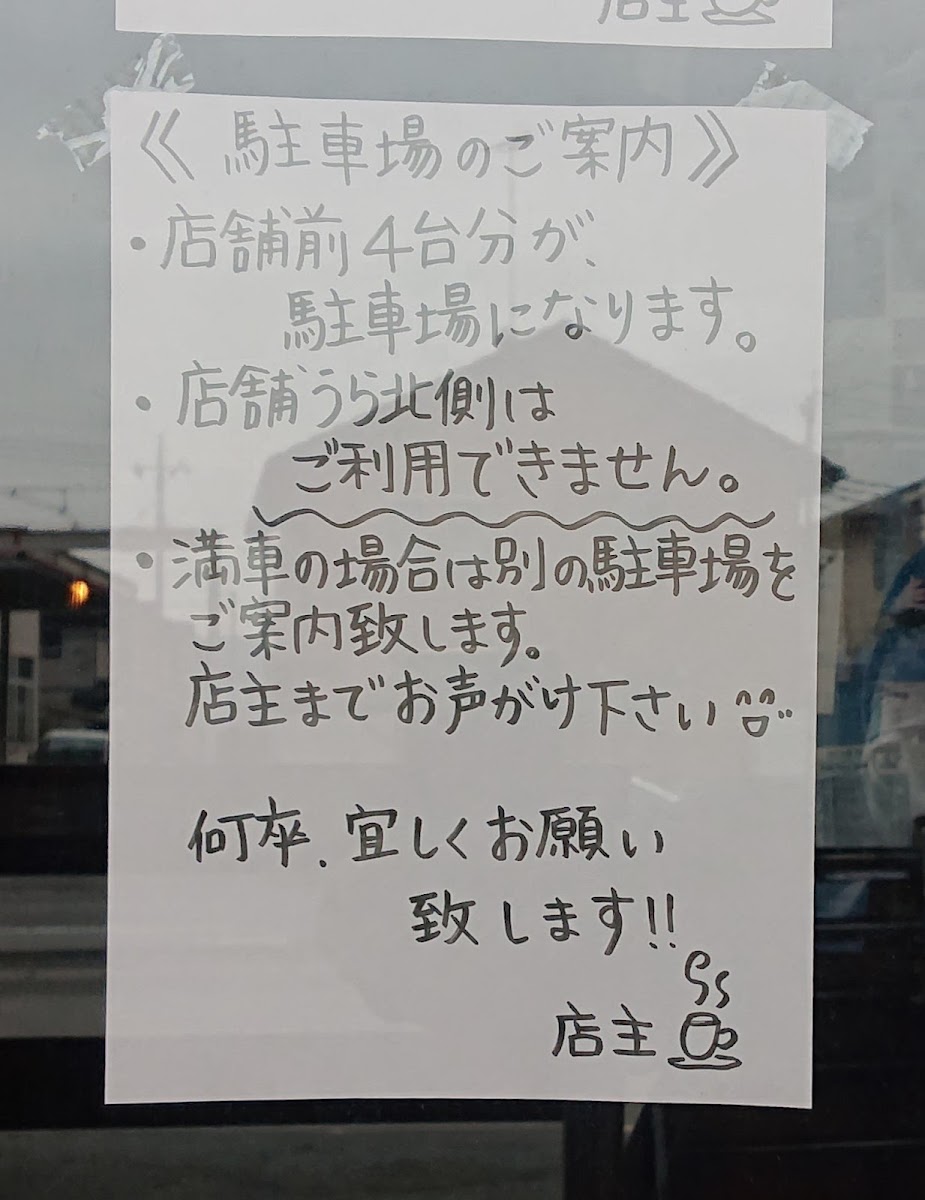 店主
《駐車場のご案内》
・店舗前4台分が、
駐車場になります。
・店舗うら北側は
ご利用できません。
・満車の場合は別の駐車場を
ご案内致します。
店主までお声がけ下さい
何卒、宜しくお願い
致します!!
店主